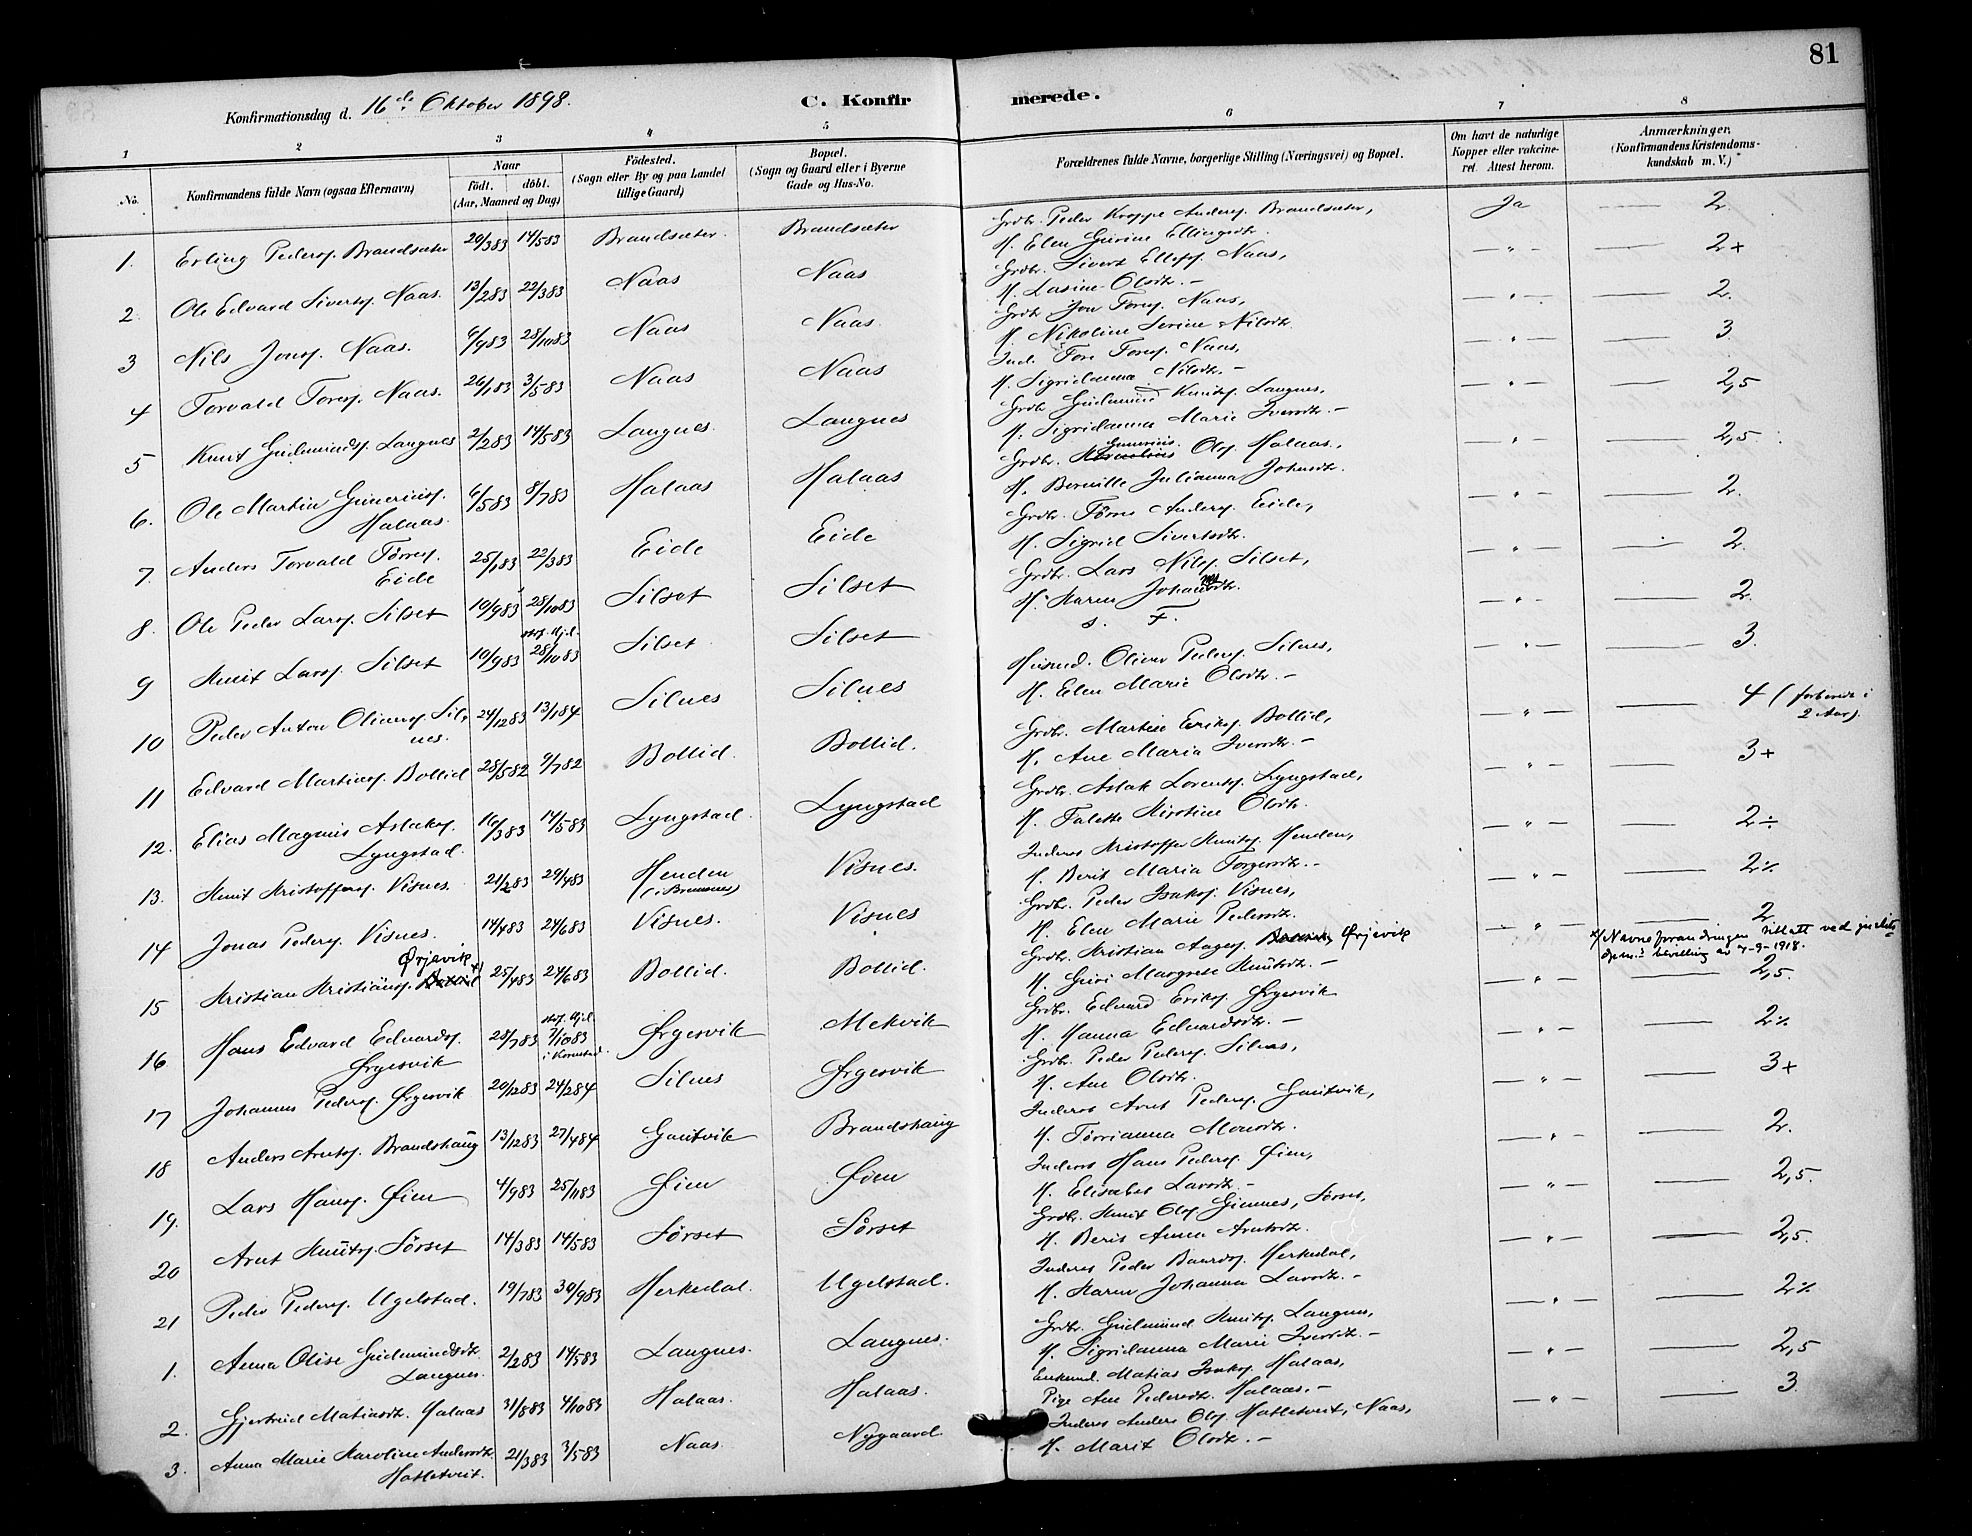 81
Konfirmationsdag d. 16de Oktober 1898.
C. Konfirmerede.
1 2 3 4 5 6 7 8
No. Konfirmandens fulde Navn (ogsaa Efternavn) Naar födt. döbt. (Aar, Maaned og Dag) Födested. (Sogn eller By og paa Landet tillige Gaard) Bopæl. (Sogn og Gaard eller i Byerne Gade og Hus-No. Forældrenes fulde Navne, borgerlige Stilling (Næringsvei) og Bopæl. Om havt de naturlige Kopper eller vaccineret. Attest herom. Anmærkninger. (Konfirmandens Kristendomskundskab m. V.)
1. Erling Peders. Brandsæter 20/3 83 14/5 83 Brandsæter. Brandsæter Grdbr. Peder Kroppe Anders. Brandsæter, Ja — 2.
H. Elen Gurine Ellingsdtr.
2. Ole Edvard Siverts. Naas. 13/2 83 22/3 83 Naas Naas Grdbr. Sivert Ellefs. Naas, — " — 2+
H. Lasine Olsdtr. —
3 Nils Jons. Naas. 6/9 83 28/10 83 Naas Naas. Grdbr. Jon Tores. Naas, — " — 2.
H. Nikoline Serine Nilsdtr.
4 Torvald Tores. Naas. 26/1 83 3/5 83 Naas Naas Ind. Tore Tores. Naas, — " — 3
H. Sigridanna Nilsdtr. —
5 Knut Gudmunds. Langnes 2/2 83 14/5 83 Langnes. Langnes Grdbr. Gudmund Knuts. Langnes, — " — 2,5
H. Sigridanna Marie Iversdtr. —
6. Ole Martin Gunerius. Halaas. 6/5 83 8/7 83 Halaas Halaas Grdbr. Gunerius Ols. Halaas, — " — 2,5.
H. Bernille Julianna Johnsdtr.
7 Anders Torvald Tørres. Eide 25/1 83 22/3 83 Eide Eide Grdbr. Tørres Anders. Eide, — " — 2.
H. Sigrid Sivertsdtr.
8. Ole Peder Lars. Silset 10/9 83 28/10 83 Silset Silset Grdbr. Lars Nils. Silset, — " — 2.
H. Karen Johansdtr.
9 Knut Lars. Silset 10/9 83 28/10 83 Silset. Silset s. F. — " — 2.
10 Peder Anton Olivers. Silnes. 24/12 83 13/1 84 Silnes Silnes Husmd. Oliver Peders. Silnes, — " — 3.
H. Elen Marie Olsdtr. —
11 Edvard Martins. Bollid 28/5 82 9/7 82 Bollid. Bollid. Grdbr. Martin Eriks. Bollid, — " — 4 (forberedt i 2 Aar).
H. Ane Maria Iversdtr. —
12. Elias Magnus Aslaks. Lyngstad. 16/3 83 14/5 83 Lyngstad. Lyngstad Grdbr. Aslak Lorents. Lyngstad, — " — 3+
H. Falette Kirstine Olsdtr.
13. Knut Kristoffers. Visnes. 21/2 83 29/4 83 Henden (i Bremsnes) Visnes. Inderst Kristoffer Knuts. Henden, — " — 2÷
H. Berit Maria Torgersdtr. —
14 Jonas Peders. Visnes. 14/4 83 24/6 83 Visnes. Visnes Grdbr. Peder Isaks. Visnes, — " — 2%
H. Elen Marie Pedersdtr.
15 Kristian Kristians. Bollid x) Ørjevik 25/4 83 24/6 83 Bollid. Bollid. Grdbr. Kristian Aages. Ørjevik — " — 2
H. Guri Margrete Knutsdtr. —
x/ Navneforandringen tillatt ved justitsdepm.s bevilling av 7-9-1918.
16 Hans Edvard Edvards. Ørgesvik 28/7 83 7/10 83 i Kornstad. Ørgesvik Mekvik Grdbr. Edvard Eriks. Ørgesvik — " — 2,5.
H. Hanna Edvardsdtr. —
17 Johannes Peders. Ørgesvik 20/12 83 24/2 84 Silnes Ørgesvik Grdbr. Peder Peders. Silnes, — " — 2%
H. Ane Olsdtr.
18 Anders Arnts. Brandshaug 13/12 83 27/4 84 Gautvik Brandshaug Inderst Arnt Peders. Gautvik, — " — 3+
H. Tørrianna Monsdtr.
19. Lars Hans. Øien 4/9 83 25/11 83 Øien Øien Inderst Hans Peders. Øien, — " — 2.
H. Elisabet Larsdtr. —
20 Arnt Knuts. Sørset 14/3 83 14/5 83 Sørset Sørset Grdbr. Knut Ols. Gimnes, Sørset, — " — 2,5.
H. Berit Anna Arntsdtr.
21 Peder Peders. Ugelstad. 19/7 83 30/9 83 Herkedal. Ugelstad. Inderst Peder Baards. Herkedal, — " — 2,5.
H. Karen Johanna Larsdtr. —
1. Anna Olise Gudmundsdtr. Langnes. 2/2 83 14/5 83 Langnes. Langnes. Grdbr. Gudmund Knuts. Langnes, — " — 2%
H. Sigridanna Marie Iversdtr. —
2. Gjertrud Matiasdtr. Halaas 31/8 83 4/10 83 Halaas. Halaas. Matias Isaks. Halaas, — " — 2,5
Pige Ane Pedersdtr. Halaas. —
3. Anna Marie Karoline Andersdtr. Hatletveit. 21/3 83 3/5 83 Naas. Nygaard. Inderst Anders Ols. Hatletveit, Naas, — " — 3.
H. Marit Olsdtr. —